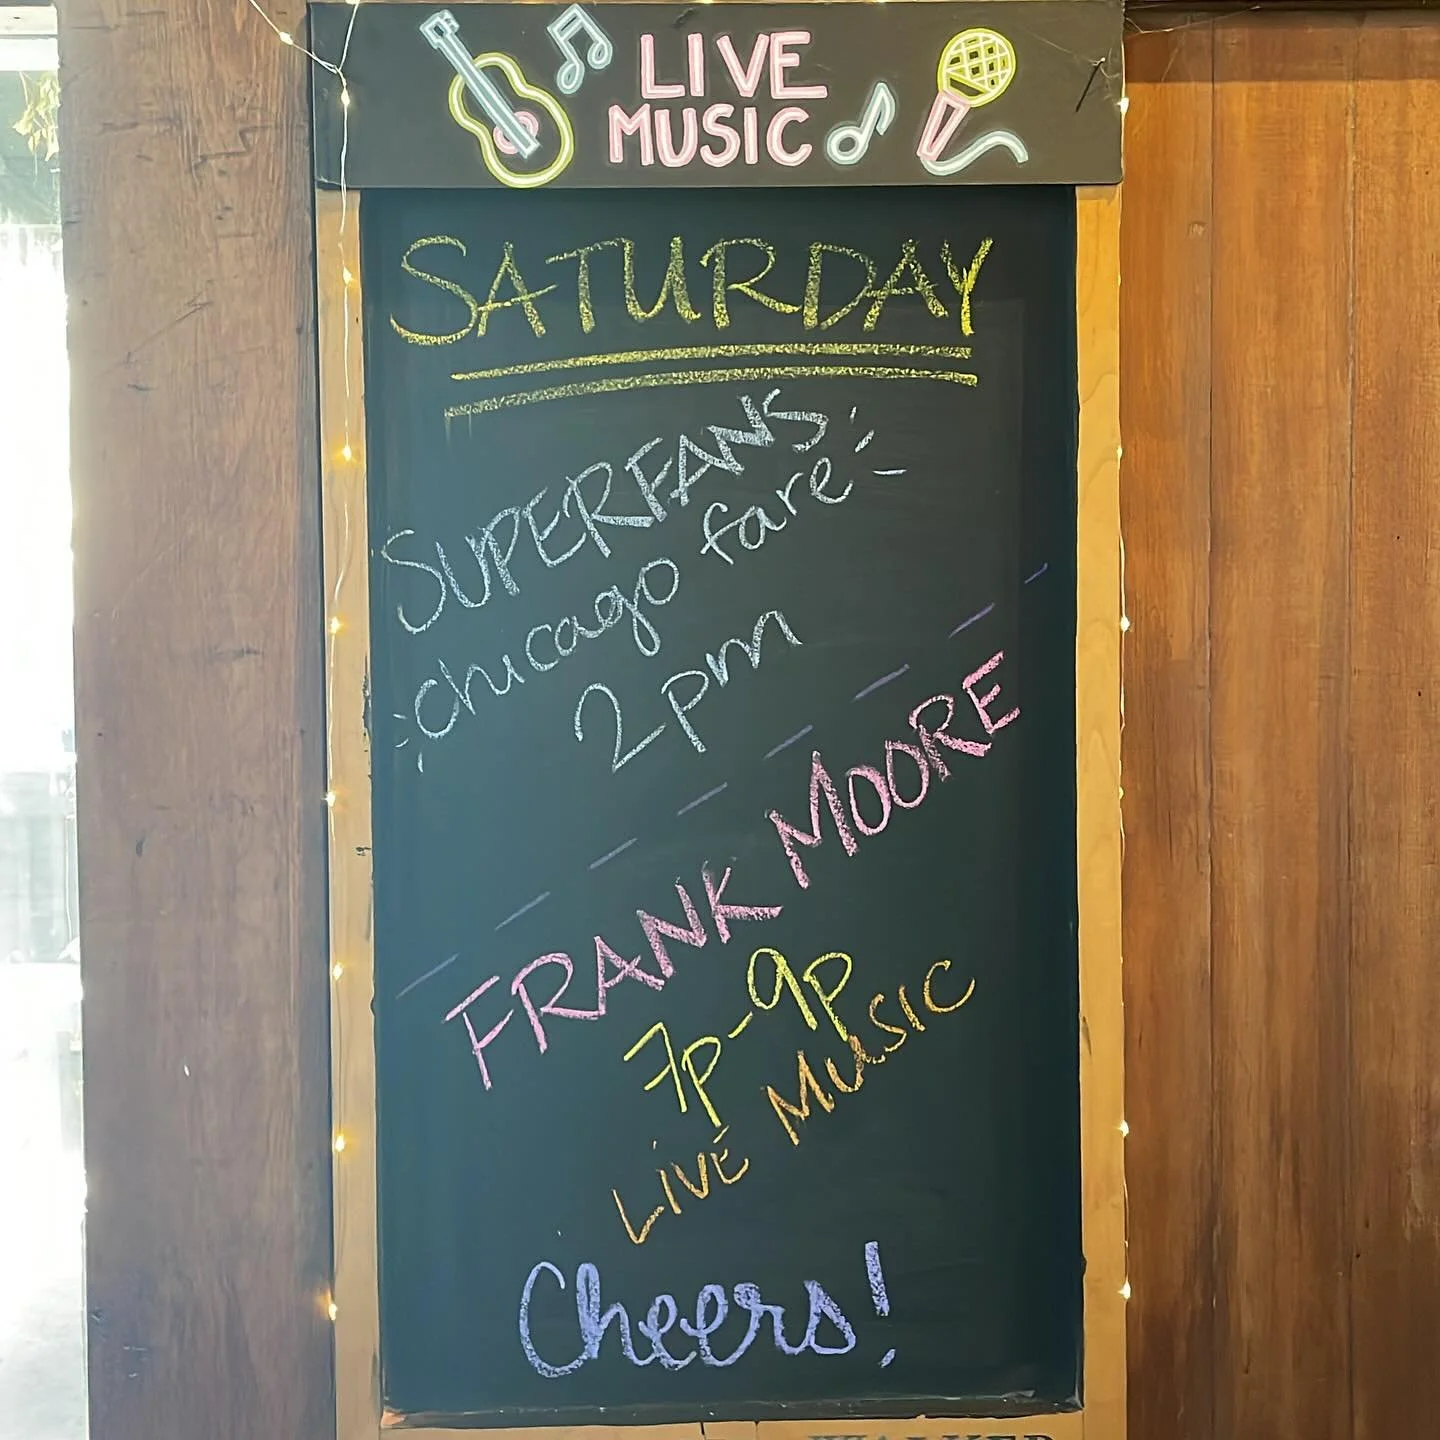 LIVE
MUSIC
SATURDAY
SUPERFANS
chicago fare
2pm
FRANK MOORE
7p-9p
LIVE MUSIC
Cheers!